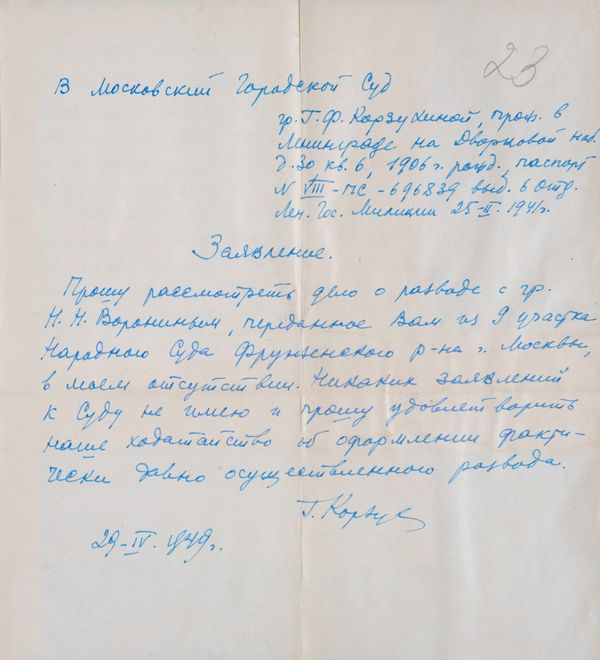 23
В Московский Городской Суд
гр. Г. Ф. Корзухиной, прож. в
Ленинграде на Дворцовой наб.
д. 30 кв. 6, 1906 г. рожд., паспорт
N VIII-ПС-696839 выд. 6 отд.
Лен. Гос. Милиции 25-II-1941 г.
Заявление.
Прошу рассмотреть дело о разводе с гр.
Н. Н. Ворониным, переданное Вам из 9 участка
Народного Суда Фрунзенского р-на г. Москвы,
в моем отсутствии. Никаких заявлений
к Суду не имею и прошу удовлетворить
наше ходатайство об оформлении факти-
чески давно осуществленного развода.
Г. Корзух
29-IV. 1949 г.